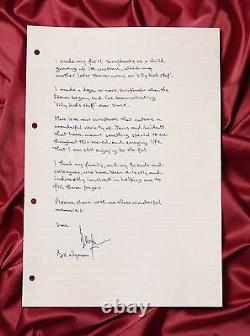 I made my first scrapbooks as a child
growing up in wartime, which my
mother later threw away as 'silly kid's stuff'.
I made a dozen or more scrapbooks when the
Stones began, and I've been collecting
'silly kid's stuff' ever since.
Here is a new scrapbook that contains a
wonderful variety of items and incidents
that have meant something special to me
throughout this varied and amazing life
that I am still enjoying to the full.
I thank my family, and my friends and
colleagues, who have been directly and
indirectly involved in helping me to
fill these pages.
Please share with me these wonderful
memories.
Love
Bill Wyman